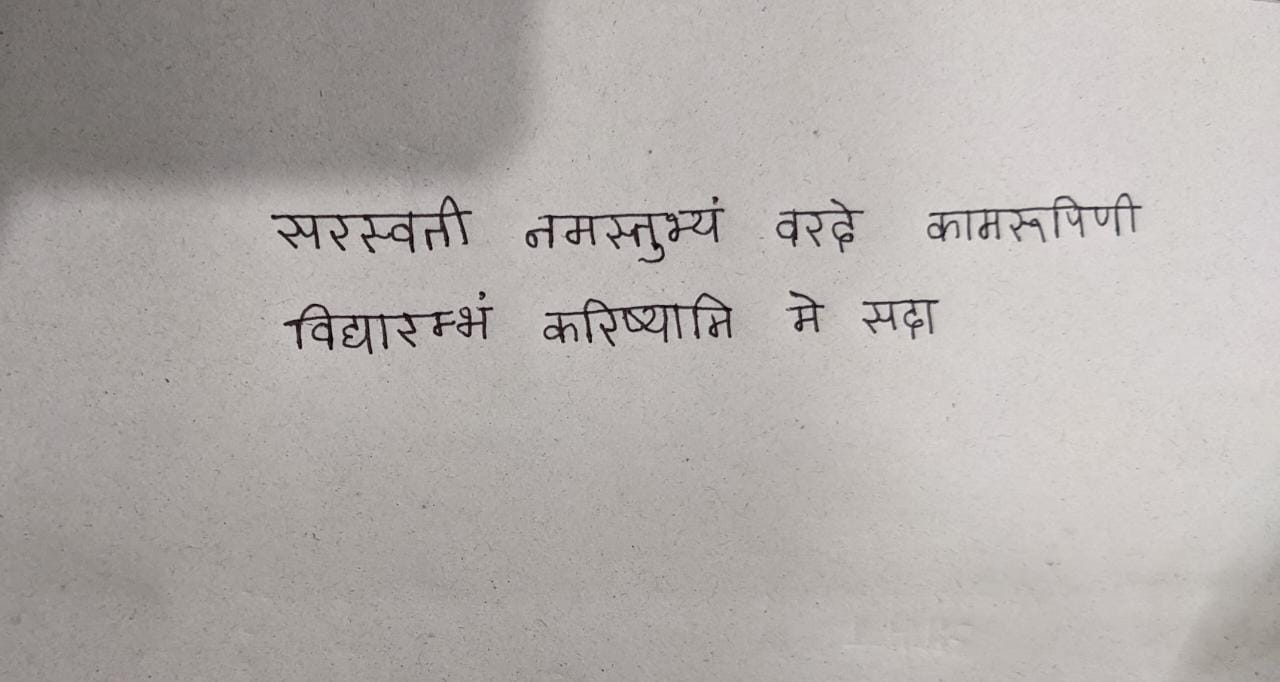 सरस्वती नमस्तुभ्यं वरदे कामरूपिणी
विद्यारम्भं करिष्यामि मे सदा